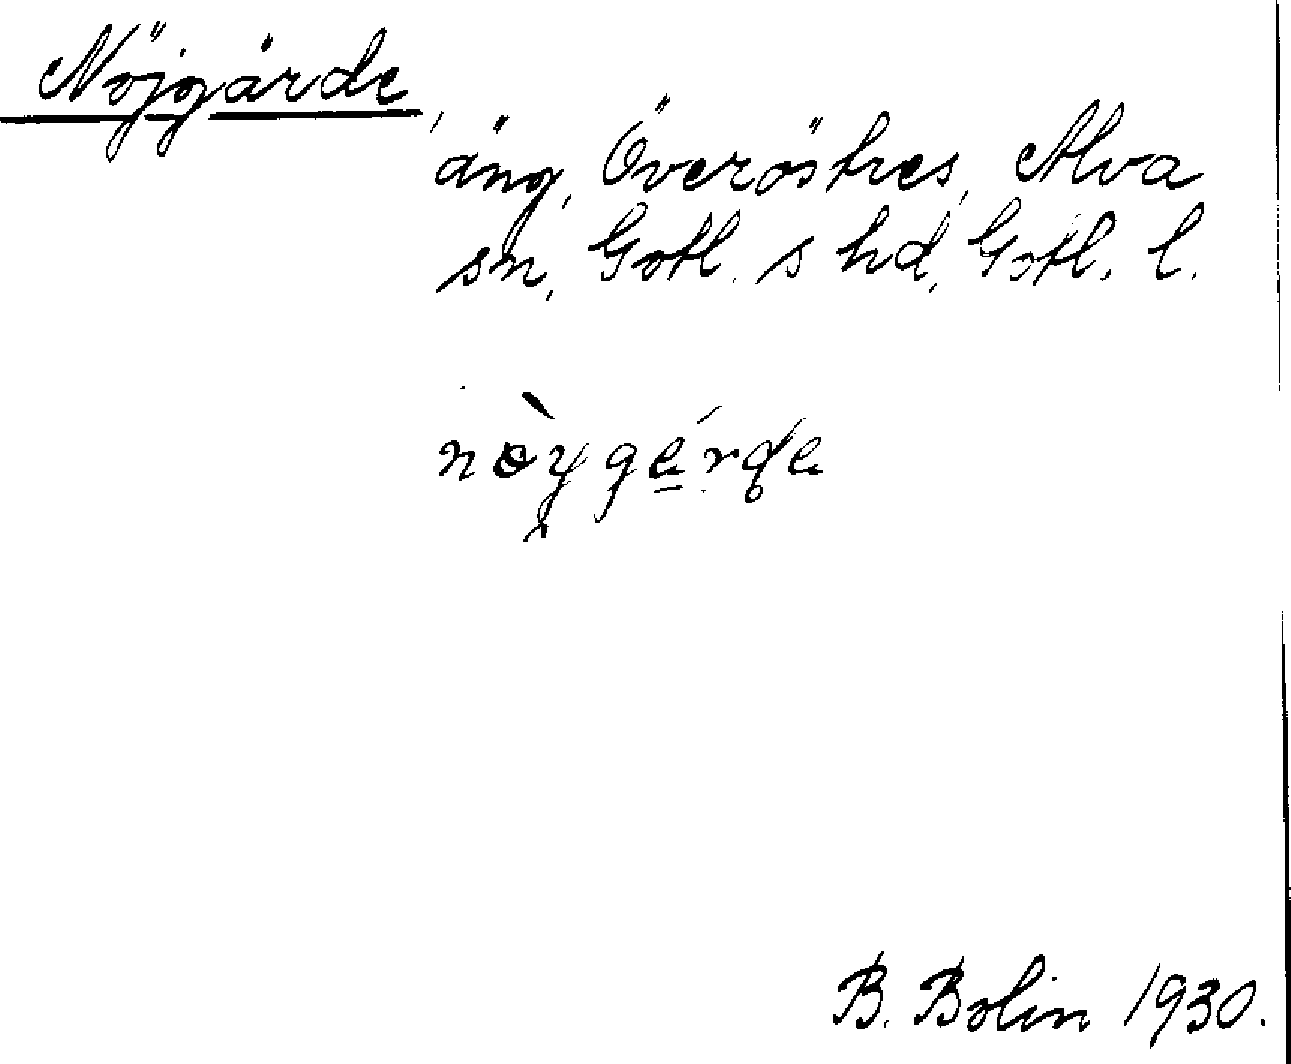 Nöjgärde,
äng, Överöstres, Alva
sn, Gotl. s hd, Gotl. l.
nɵ̀ygé̠rde
B. Bolin 1930.